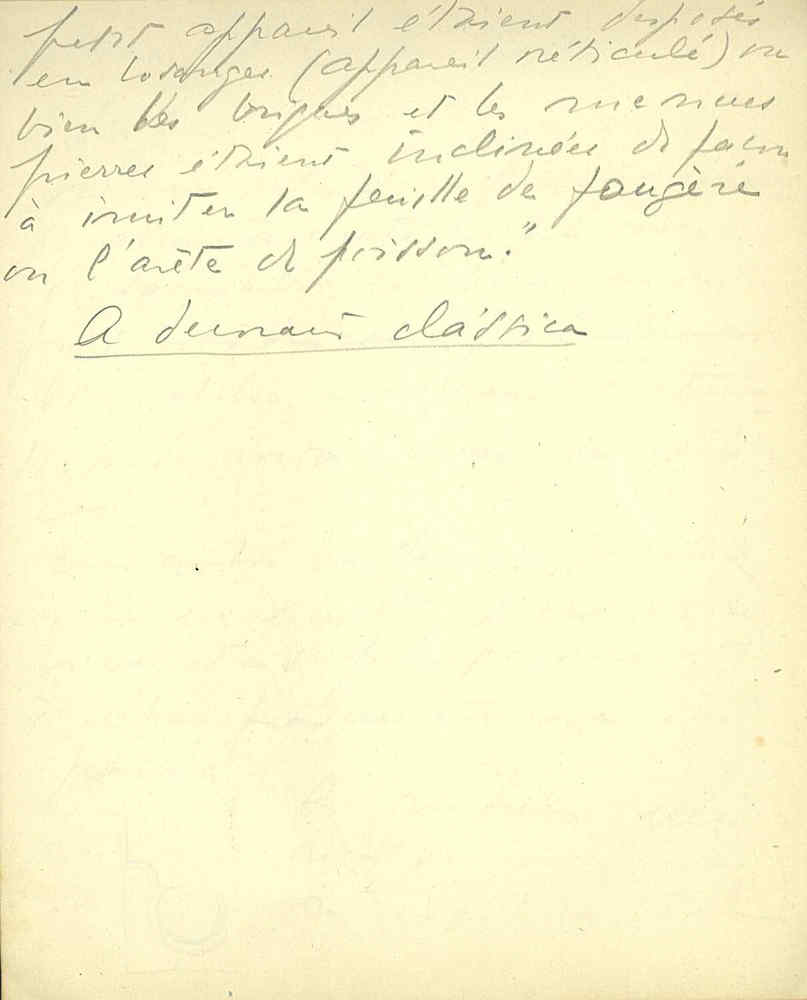 petit appareil étaient disposés
en losanges (appareil réticulé) ou
bien les briques et les menues
pierres étaient inclinées de façon
à imiter la feuille de fougère
ou l'arête de poisson."
A demain clássica